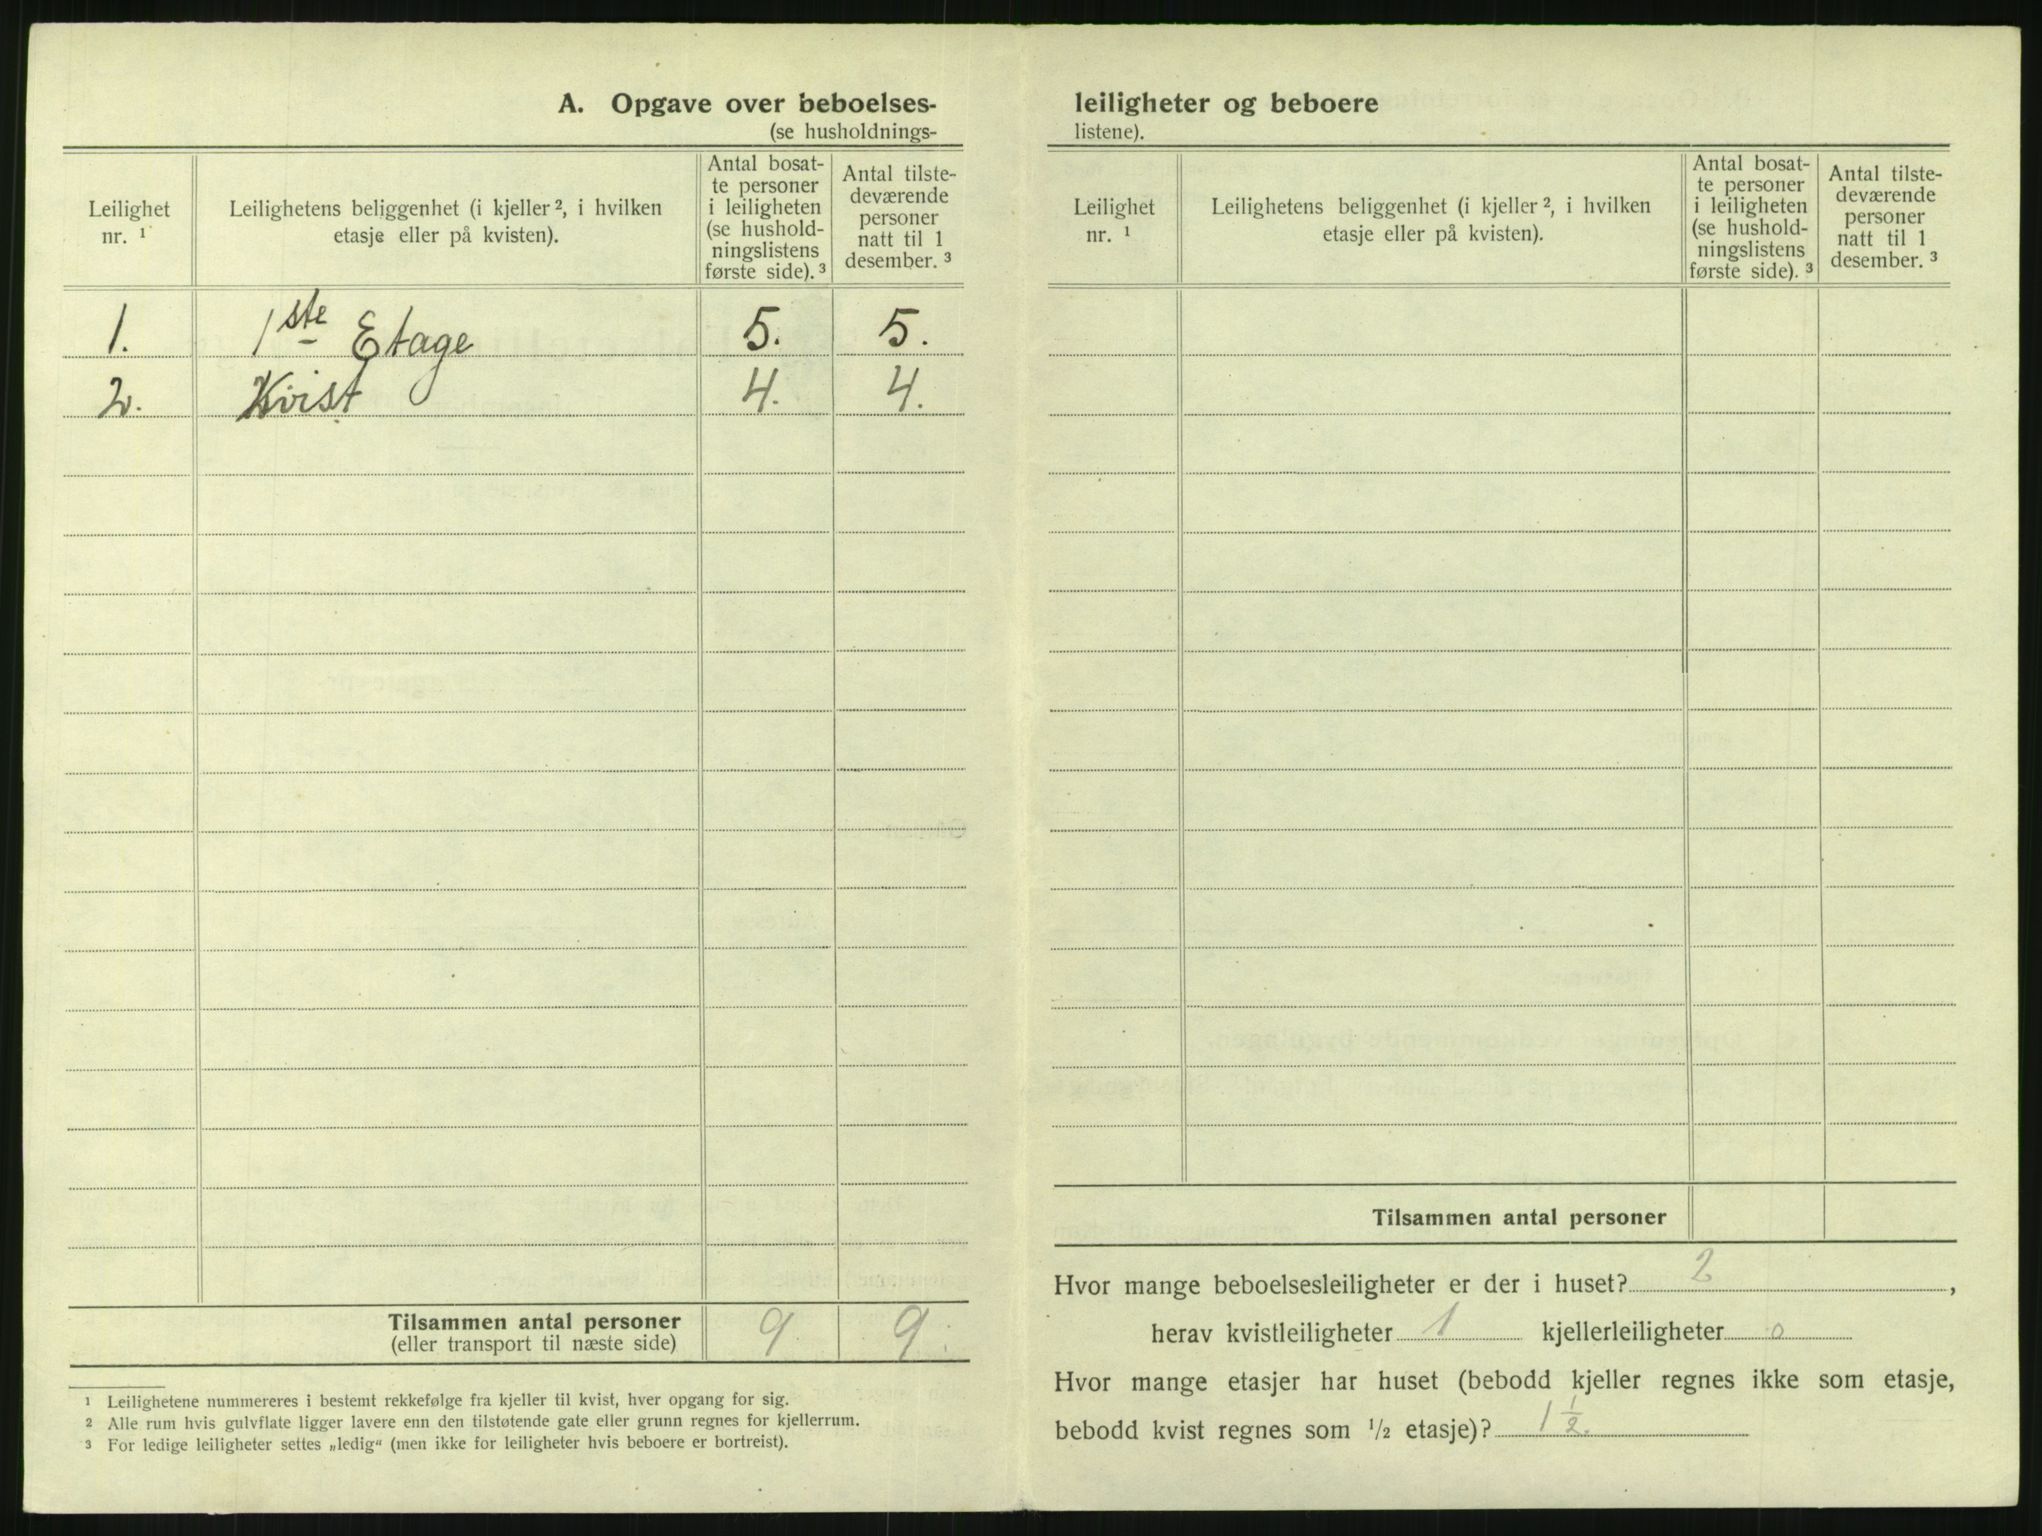 A. Opgave over beboelses-
(se husholdnings-
Leilighet
nr. ¹
Leilighetens beliggenhet (i kjeller ², i hvilken
etasje eller på kvisten).
Antal bosat-
te personer
i leiligheten
(se hushold-
ningslistens
første side). ³
Antal tilste-
deværende
personer
natt til 1
desember. ³
1. 1ste Etage 5. 5.
2. Kvist 4. 4.
Tilsammen antal personer 9 9.
(eller transport til næste side)
¹ Leilighetene nummereres i bestemt rekkefølge fra kjeller til kvist, hver opgang for sig.
² Alle rum hvis gulvflate ligger lavere enn den tilstøtende gate eller grunn regnes for kjellerrum.
³ For ledige leiligheter settes „ledig“ (men ikke for leiligheter hvis beboere er bortreist).
leiligheter og beboere
listene).
Leilighet
nr. ¹
Leilighetens beliggenhet (i kjeller ², i hvilken
etasje eller på kvisten).
Antal bosat-
te personer
i leiligheten
(se hushold-
ningslistens
første side). ³
Antal tilste-
deværende
personer
natt til 1
desember. ³
Tilsammen antal personer
Hvor mange beboelsesleiligheter er der i huset? 2,
herav kvistleiligheter 1 kjellerleiligheter 0
Hvor mange etasjer har huset (bebodd kjeller regnes ikke som etasje,
bebodd kvist regnes som ½ etasje)? 1 ½.